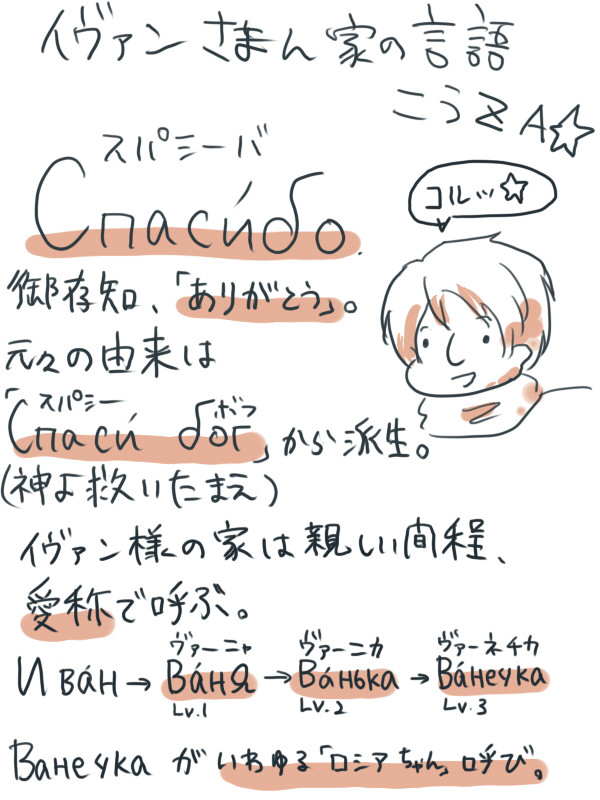 イヴァンさまん家の言語
こうzA☆
スパシーバ
Спаси́бо.
コルッ☆
御存知、「ありがとう」。
元々の由来は
スパシー ボフ
「Спаси́ бог」から派生。
(神よ救いたまえ)
イヴァン様の家は親しい間程、
愛称で呼ぶ。
ヴァーニャ ヴァーニカ ヴァーネチカ
Ива́н→Ва́ня→Ва́нька→Ва́нечка
Lv.1 Lv.2 Lv.3
Ванечка がいわゆる「ロシアちゃん」呼び。